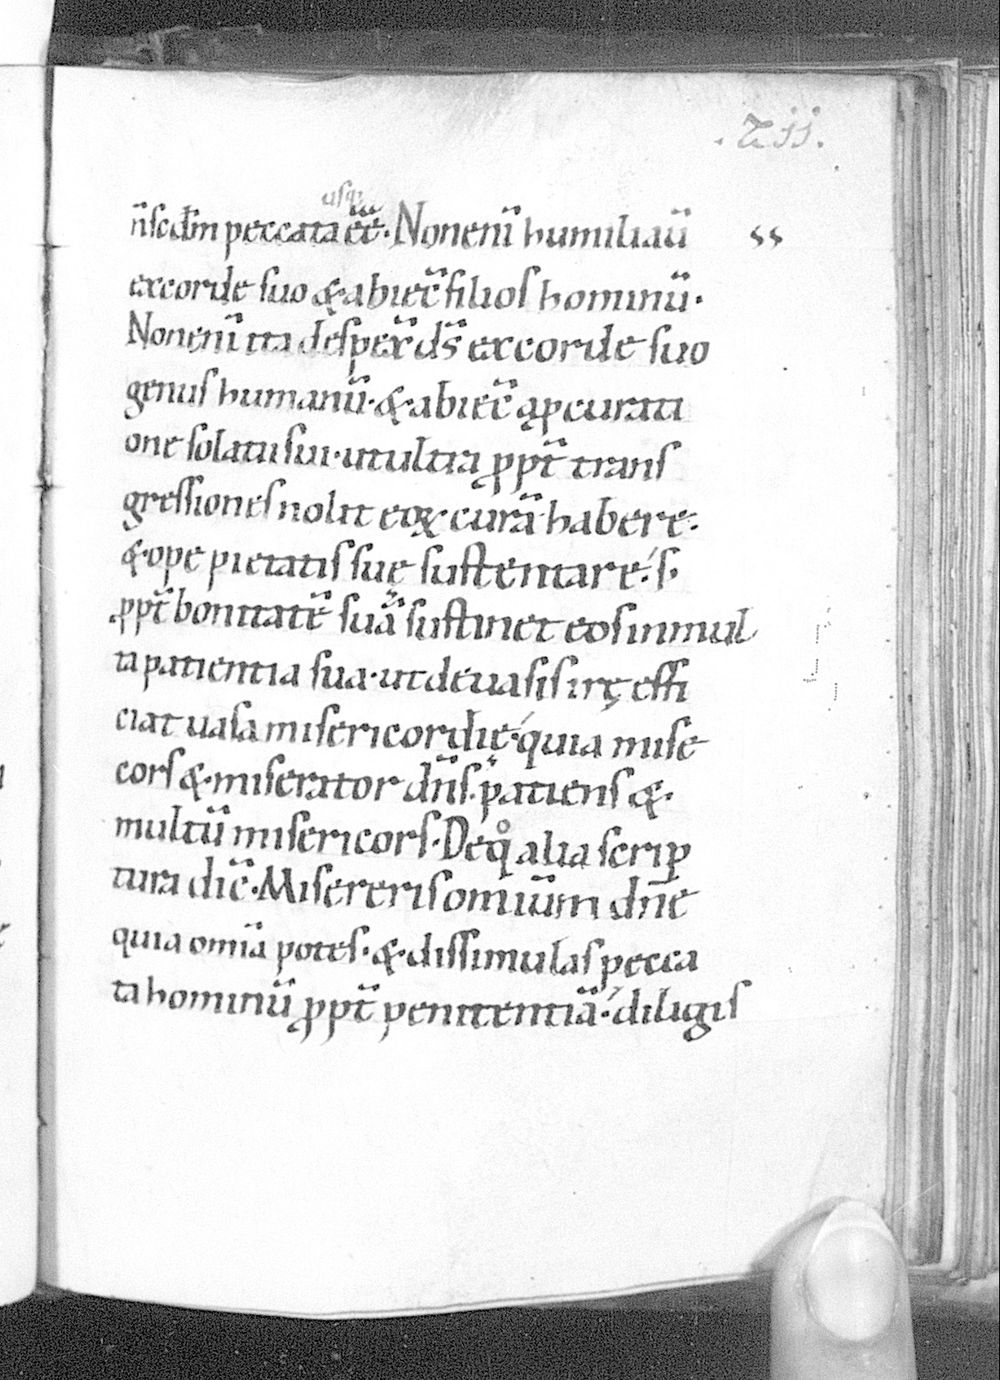 .Zii.
usq;
n̄ scd̄m peccata ēē. Non eni̅ humiliau̅
ex corde suo & abiec̅ filios hominu̅.
Non eni̅ ita despex̅ ds̅ ex corde suo
genus humanu̅. & abiec̅ a ꝑcurati
one solatii sui. ut ultra ꝓpt̅ trans
gressiones nolit eoꝝ cura̅ habere.
& ope pietatis suę sustentare. s;
ꝓpt̅ bonitate̅ sua̅ sustinet eos in mul
ta patientia sua. ut de uasis irę effi
ciat uasa misericordie. quia mise
cors & miserator dn̅s. patiens &
multu̅ misericors. De qͦ alia scrip
tura dic̅. Misereris omiu̅m dn̅e
quia omia̅ potes. & dissimulas pecca
ta hominu̅ ꝓpt̅ penitentia̅. diligis